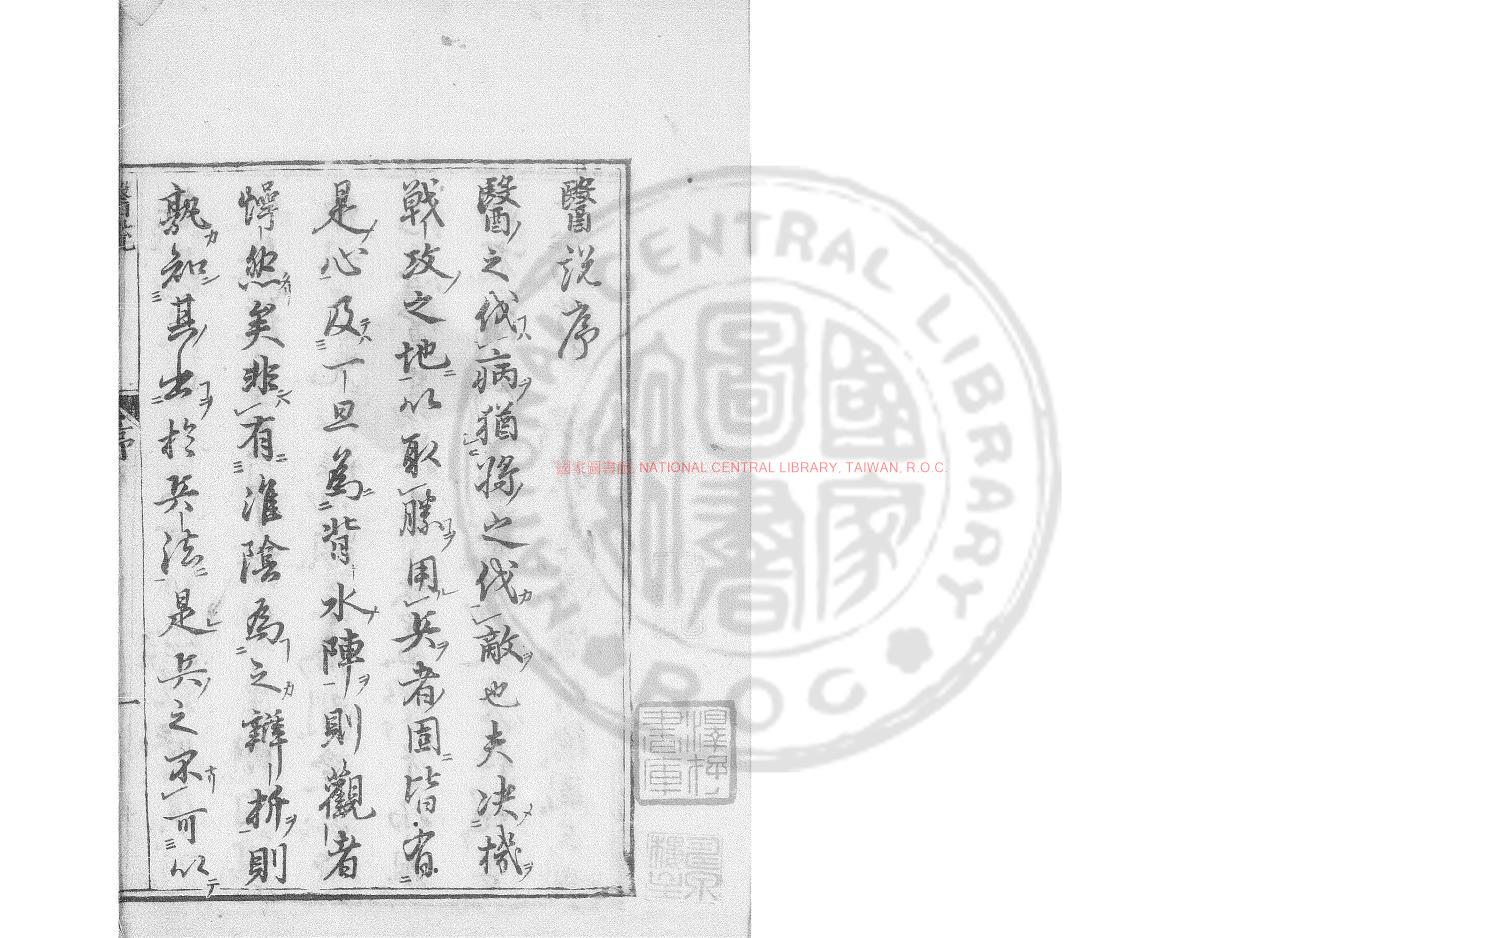 醫説序
醫之伐病猶將之伐敵也夫决機
戰攻之地以取勝用兵者固皆有
是心及一旦為背水陣則觀者
愕然矣非有淮陰為之辯析則
孰知其出於兵法是兵之不可以
序
一
國家圖書館, NATIONAL CENTRAL LIBRARY, TAIWAN, R.O.C.
NATIONAL CENTRAL LIBRARY
ROC
國家圖書